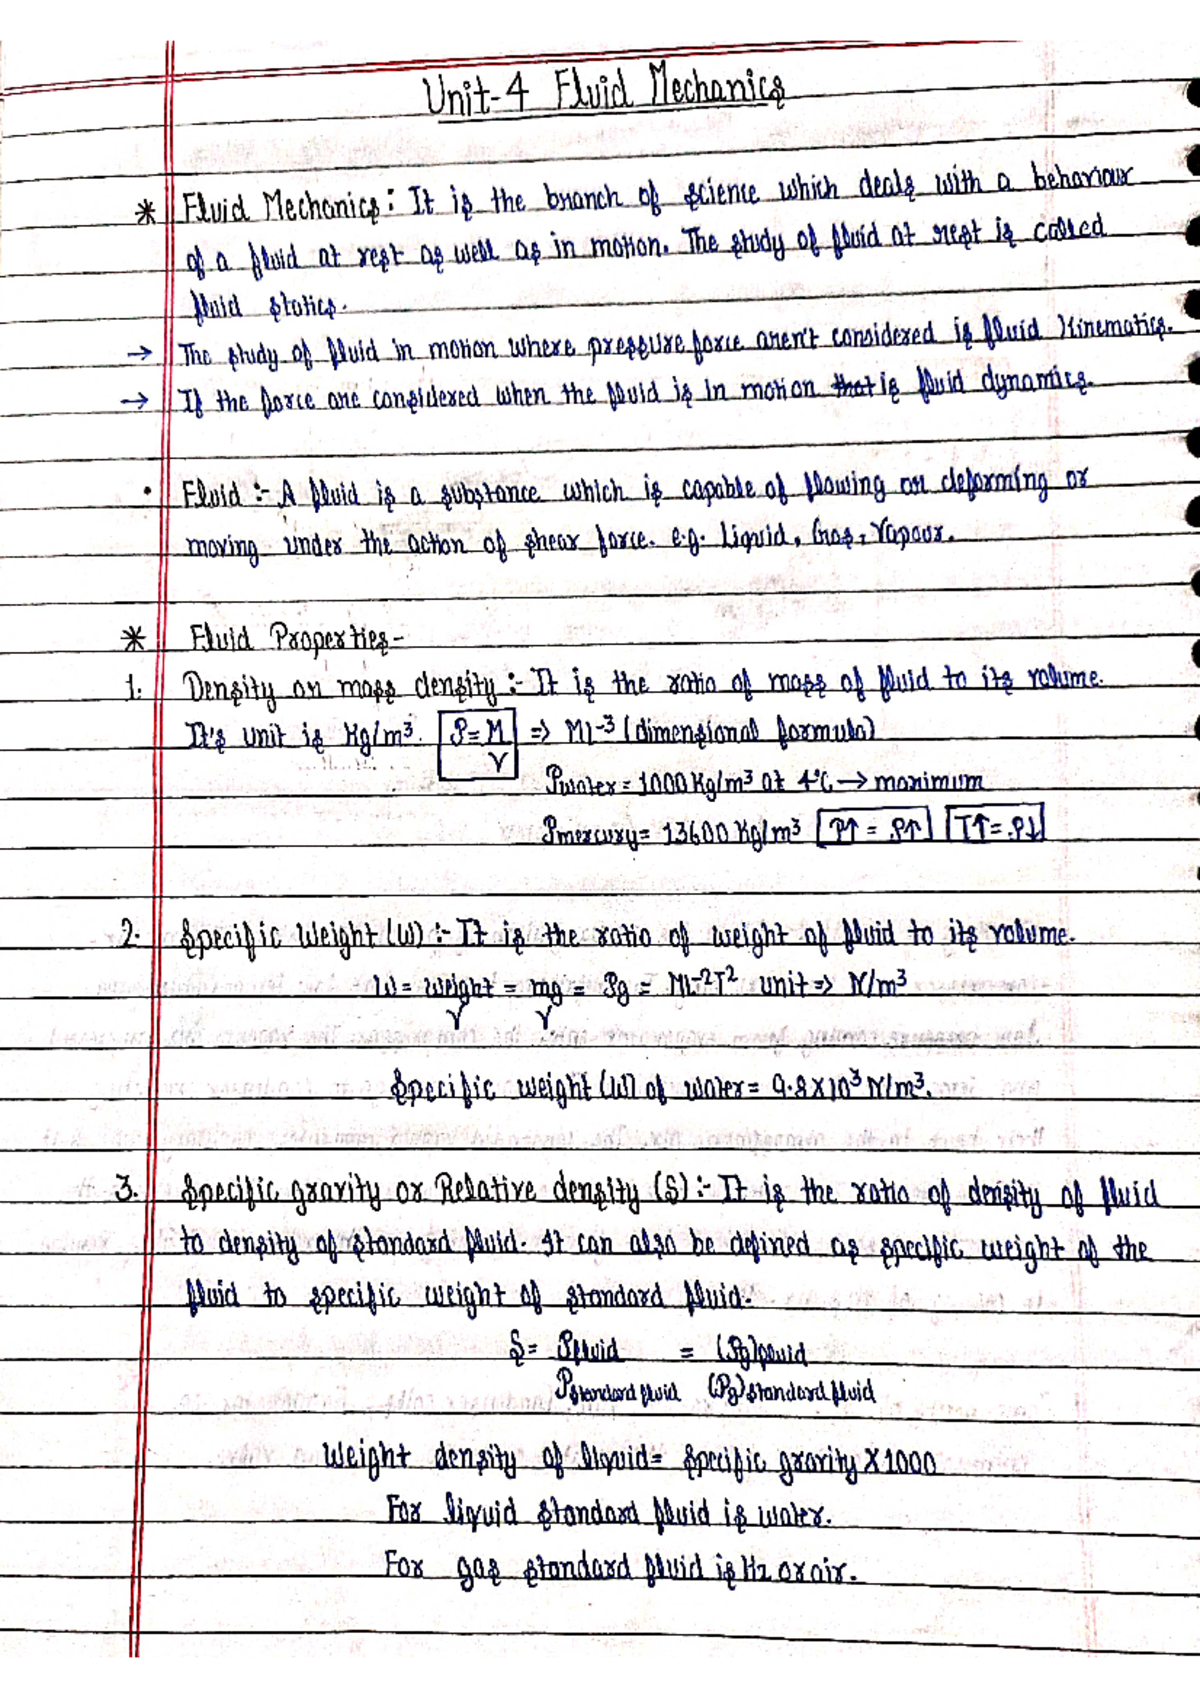 Unit-4 Fluid Mechanics
* Fluid Mechanics: It is the branch of science which deals with a behaviour
of a fluid at rest as well as in motion. The study of fluid at rest is called
fluid statics.
→ The study of fluid in motion where pressure force aren't considered is fluid Kinematics.
→ If the force are considered when the fluid is in motion that is fluid dynamics.
• Fluid :- A fluid is a substance which is capable of flowing or deforming or
moving under the action of shear force. e.g. Liquid, Gas, Vapour.
* Fluid Properties-
1. Density or mass density :- It is the ratio of mass of fluid to its volume.
It's unit is Kg/m³. ρ = M/V => ML⁻³ (dimensional formula)
ρwater = 1000 Kg/m³ at 4°C → maximum
ρmercury = 13600 Kg/m³ P↑ = ρ↑ T↑ = ρ↓
2. Specific Weight (w) :- It is the ratio of weight of fluid to its volume.
W = weight/V = mg/V = ρg = ML⁻²T² unit => N/m³
Specific weight (w) of water = 9.8 X 10³ N/m³.
3. Specific gravity or Relative density (S) :- It is the ratio of density of fluid
to density of standard fluid. It can also be defined as specific weight of the
fluid to specific weight of standard fluid.
S = ρfluid = (ρg)fluid
ρstandard fluid (ρg)standard fluid
Weight density of liquid = specific gravity X 1000
For liquid standard fluid is water.
For gas standard fluid is H2 or air.